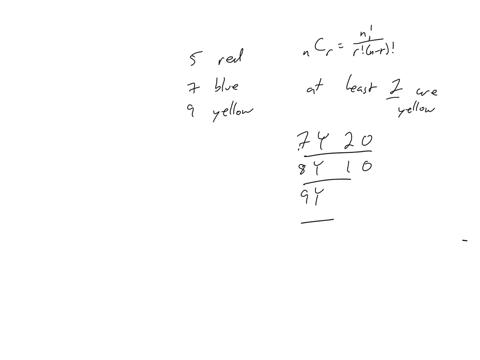 5 red
7 blue
9 yellow
nCr = n! / r!(n-r)!
at least 2 are
yellow
7Y 2O
8Y 1O
9Y